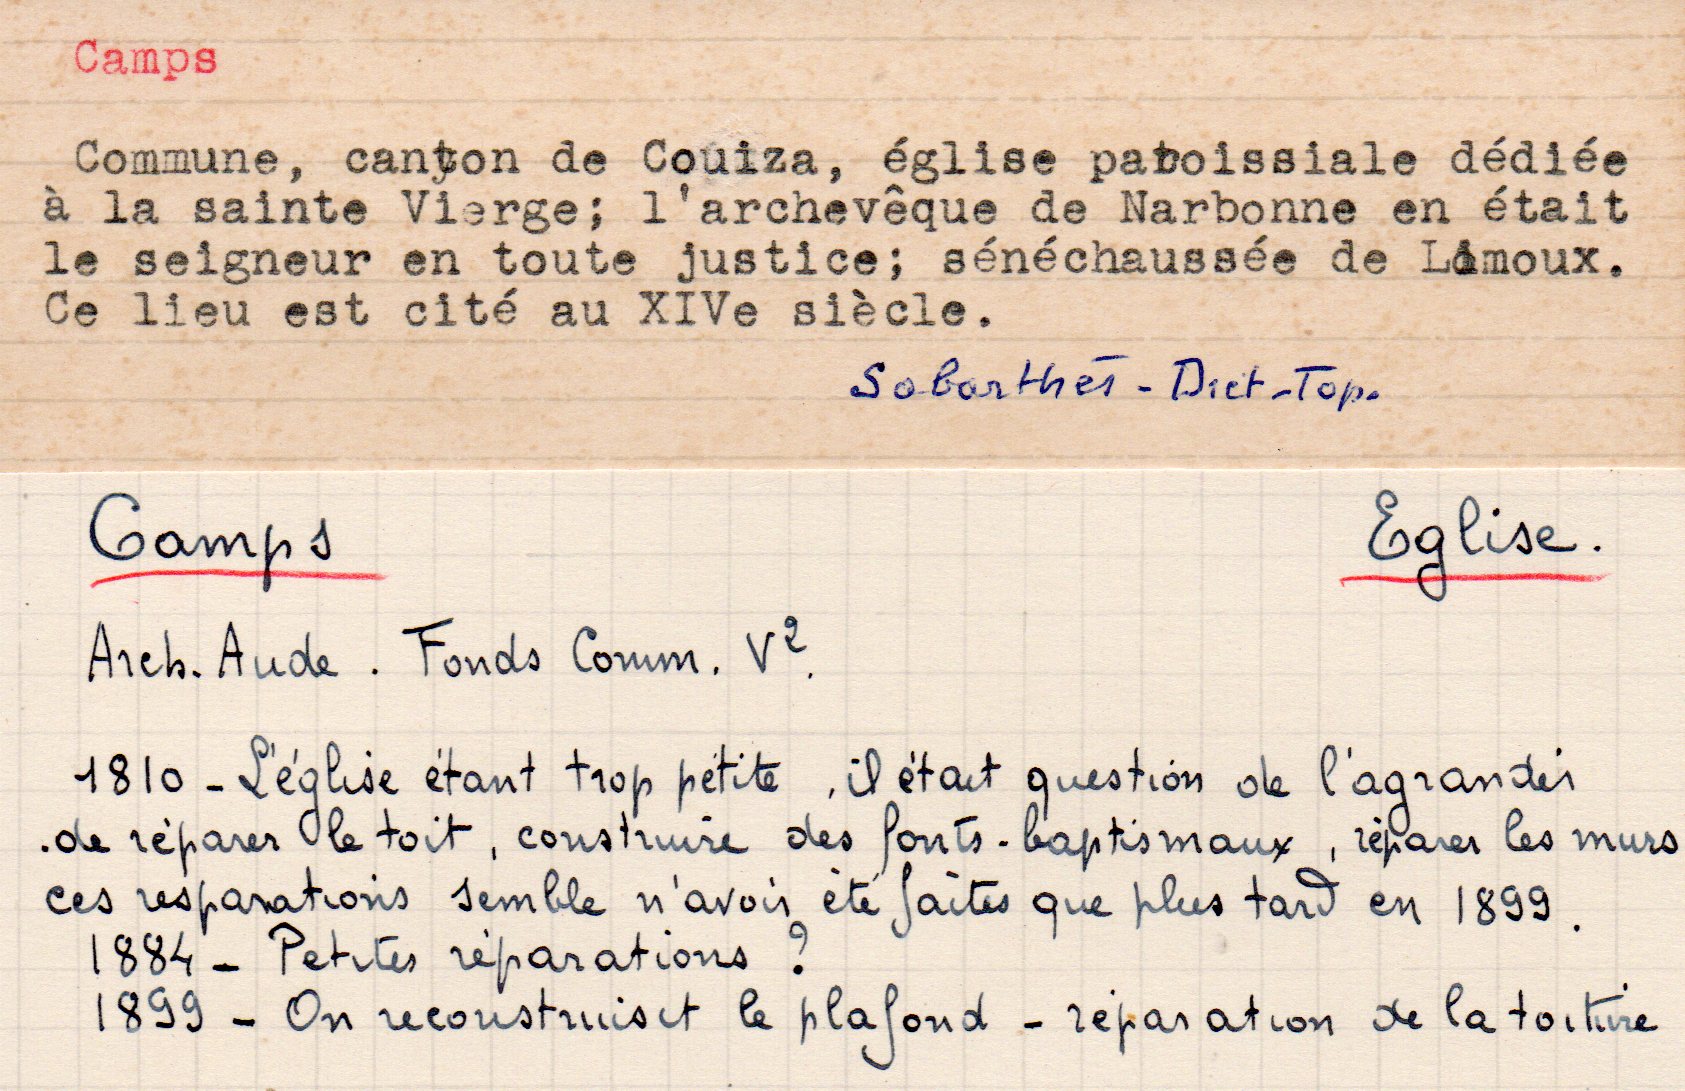 Camps
Commune, canton de Couiza, église paroissiale dédiée
à la sainte Vierge; l'archevêque de Narbonne en était
le seigneur en toute justice; sénéchaussée de Limoux.
Ce lieu est cité au XIVe siècle.
Sabarthès - Dict - Top.
Camps Eglise.
Arch. Aude. Fonds Comm. V².
1810 - L'église étant trop petite, il était question de l'agrandir
.de réparer le toit, construire des fonts-baptismaux, réparer les murs
ces resparations semble n'avoir été faîtes que plus tard en 1899.
1884 - Petites réparations ?
1899 - On reconstruisit le plafond - réparation de la toiture